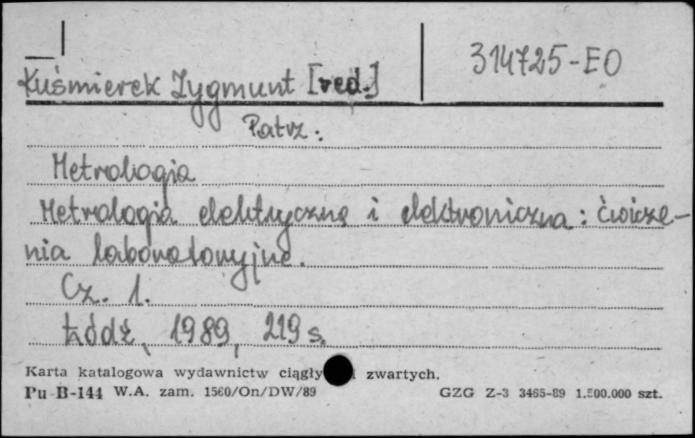 314725-EO
Kuśmierek Zygmunt [red.]
Patrz:
Metrologia
Metrologia elektryczna i elektroniczna: ćwicze-
nia laboratoryjne.
Cz. 1.
Łódź, 1989, 219 s.
Karta katalogowa wydawnictw ciągły zwartych.
Pu-B-144 W.A. zam. 1560/On/DW/89 GZG Z-3 3465-89 1.500.000 szt.